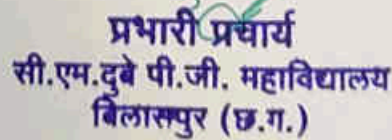 प्रभारी प्रचार्य
सी.एम.दुबे पी.जी. महाविद्यालय
बिलासपुर (छ.ग.)